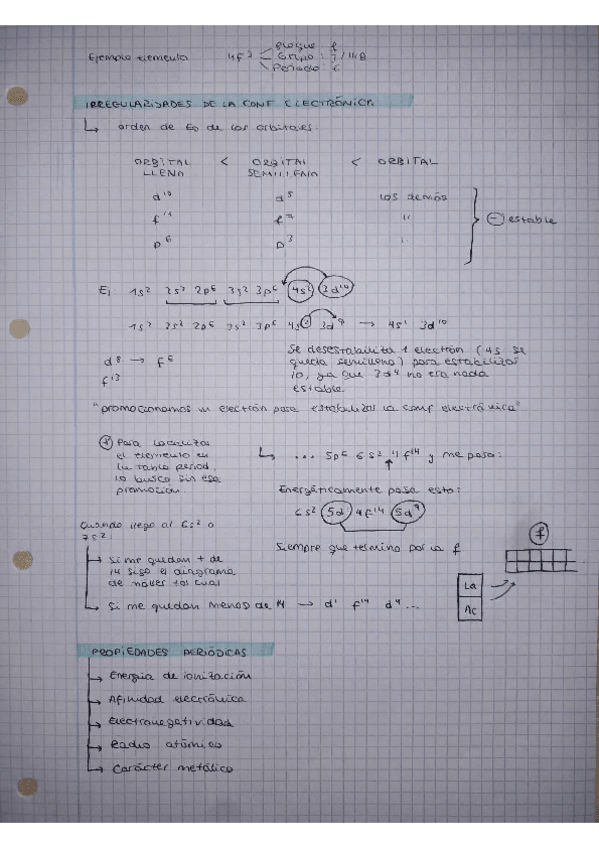 Bloque: f
Ejemplo elemento 4f² Grupo: 3 / IIIB
Periodo: 6
IRREGULARIDADES DE LA CONF ELECTRÓNICA.
orden de E de los orbitales:
ORBITAL < ORBITAL < ORBITAL
LLENA SEMILLENA
d¹⁰ d⁵ los demás
f¹⁴ f⁷ "
p⁶ p³ "
⊖ estable
Ej 1s² 2s² 2p⁶ 3s² 3p⁶ 4s² 3d¹⁰
1s² 2s² 2p⁶ 3s² 3p⁶ 4s² 3d⁹ → 4s¹ 3d¹⁰
Se desestabiliza 1 electrón (4s se
queda semilleno) para estabilizar
10, ya que 3d⁹ no era nada
estable.
d⁸ → f⁶
f¹³
"promocionamos un electrón para estabilizar la conf electrónica"
Para localizar
el elemento en
la tabla period.
lo busco sin esa
promoción.
... 5p⁶ 6s² 4f¹⁴ y me paso:
Energéticamente pasa esto:
6s² 5d¹ 4f¹⁴ 5d⁹
Siempre que termino por la f
Cuando llego al 6s² o
7s²:
Si me quedan + de
14 sigo el diagrama
de moller tal cual
Si me quedan menos de 14 → d¹ f¹⁴ d⁹ ...
f
La
Ac
PROPIEDADES PERIÓDICAS
Energía de ionización
Afinidad electrónica
Electronegatividad
Radio atómico
Carácter metálico